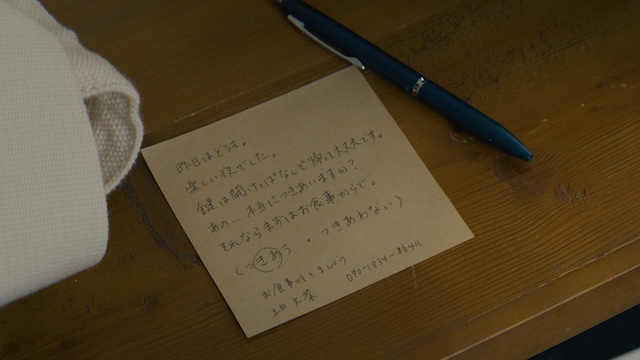 昨日はどうも。
楽しい夜でした。
鍵は開けっぱなしで帰って大丈夫です。
あの…本当につきあいますか?
それならまずはお食事からで。
(つきあう ・ つきあわない)
お食事 しましょう
090-1834-8641